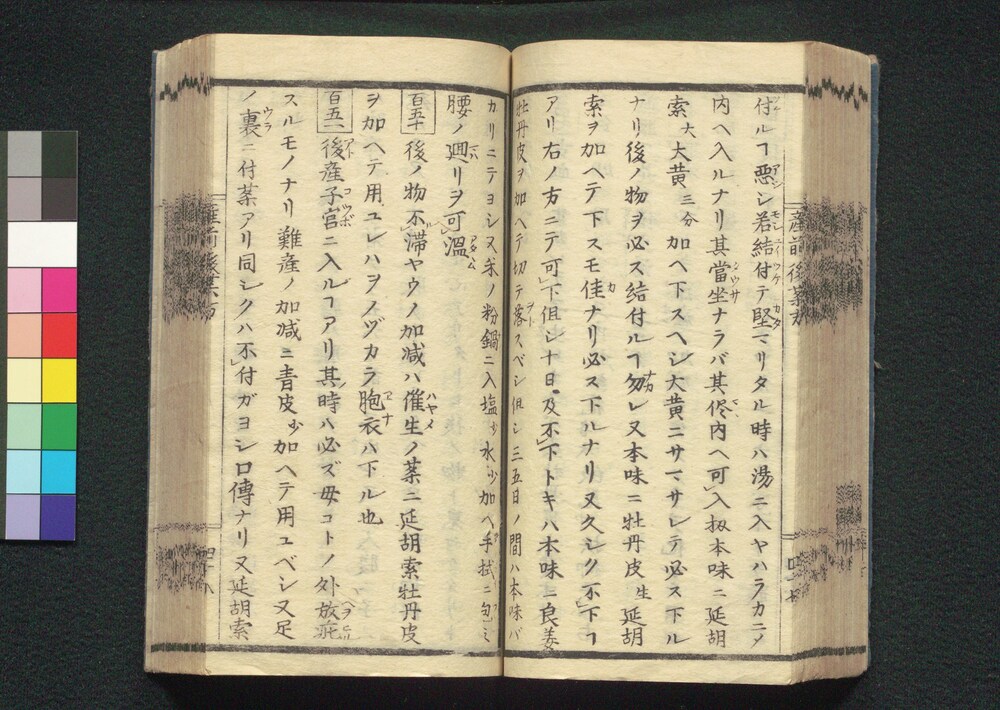 産前後薬方
付ルヿ悪シ若結付テ堅マリタル時ハ湯ニ入ヤハラカニノ
内ヘ入ルナリ其當坐ナラバ其侭内ヘ可入扨本味ニ延胡
索大大黄三分加ヘ下スヘシ大黄ニサマサレテ必ス下ル
ナリ後ノ物ヲ必ス結付ルヿ勿レ又本味ニ牡丹皮生延胡
索ヲ加ヘテ下スモ佳ナリ必ス下ルナリ又久シク不下ヿ
アリ右ノ方ニテ可下但シ十日及不下トキハ本味ニ良姜
牡丹皮ヲ加ヘテ切テ落スベシ但シ三五日ノ間ハ本味バ
カリニテヨシ又米ノ粉鍋ニ入塩少水少加ヘ手拭ニ包ミ
腰ノ廻リヲ可温
百五十 後ノ物不滞ヤウノ加減ハ催生ノ薬ニ延胡索牡丹皮
ヲ加ヘテ用ユレハヲノヅカラ胞衣ハ下ル也
百五一 後産子宮ニ入ルヿアリ其時ハ必ズ母コトノ外放屁
スルモノナリ難産ノ加減ニ青皮少加ヘテ用ユベシ又足
ノ裏ニ付薬アリ同シクハ不付ガヨシ口傳ナリ又延胡索